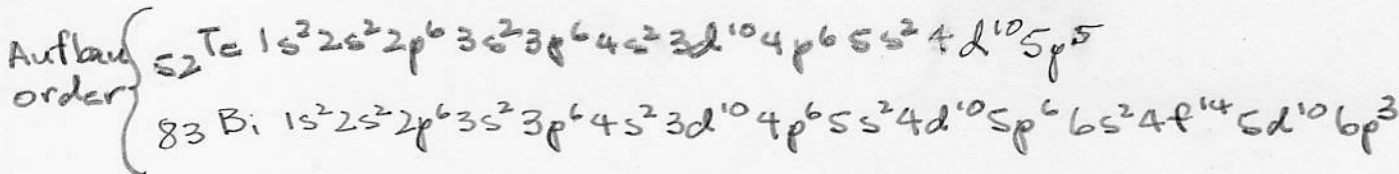 Aufbau order { ₅₂Te 1s² 2s² 2p⁶ 3s² 3p⁶ 4s² 3d¹⁰ 4p⁶ 5s² 4d¹⁰ 5p⁵
₈₃Bi 1s² 2s² 2p⁶ 3s² 3p⁶ 4s² 3d¹⁰ 4p⁶ 5s² 4d¹⁰ 5p⁶ 6s² 4f¹⁴ 5d¹⁰ 6p³